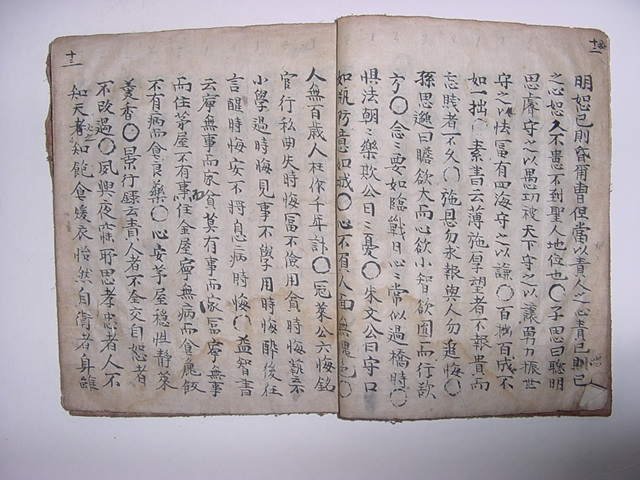 十一
明恕己則昏爾曹但當以責人之心責己則己
之心恕人不患不到聖人地位也〇子思曰聰明
思庸守之以愚功被天下守之以讓勇力振世
守之以怯冨有四海守之以謙〇百拙百成不
如一拙〇素書云薄施厚望者不報貴而
忘賤者不久〇施恩勿求報與人勿追悔〇
孫思邈曰膽欲大而心欲小智欲圓而行欲
方〇念々要如臨戰日心々常似過橋時〇
惧法朝々樂欺公日々憂〇朱文公曰守口
如甁防意如城〇心不負人面無愧色〇
人無百歲人枉作千年計〇冦萊公六悔銘
官行私曲失時悔冨不儉用貧時悔藝不
小學過時悔見事不學用時悔醉後狂
言醒時悔安不將息病時悔〇益智書
云寧無事而家貧莫有事而家冨寧無事
而住茅屋不有事而住金屋寧無病而食麁飯
不有病而食良藥〇心安茅屋穩性靜菜
羹香〇景行錄云責人者不全交自恕者
不改過〇夙興夜寐所思孝忠者人不
知天者知飽食煖衣怡然自衛者身雖
十二